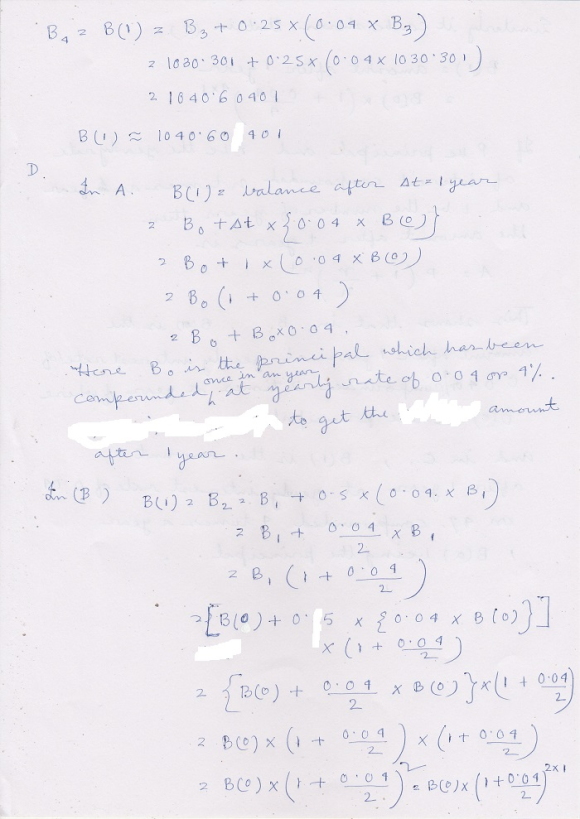 B₄ = B(1) = B₃ + 0.25 × (0.04 × B₃)
= 1030.301 + 0.25 × (0.04 × 1030.301)
= 1040.60401
B(1) ≈ 1040.60 401
D.
In A. B(1) = balance after Δt = 1 year
= B₀ + Δt × {0.04 × B(0)}
= B₀ + 1 × (0.04 × B(0))
= B₀ (1 + 0.04)
= B₀ + B₀×0.04.
Here B₀ is the principal which has been
compounded once in an year at yearly rate of 0.04 or 4%.
to get the amount
after 1 year.
In (B) B(1) = B₂ = B₁ + 0.5 × (0.04 × B₁)
= B₁ + 0.04/2 × B₁
= B₁ (1 + 0.04/2)
= [B(0) + 0. 5 × {0.04 × B(0)}]
× (1 + 0.04/2)
= {B(0) + 0.04/2 × B(0)} × (1 + 0.04/2)
= B(0) × (1 + 0.04/2) × (1 + 0.04/2)
= B(0) × (1 + 0.04/2)² = B(0) × (1 + 0.04/2)^2×1